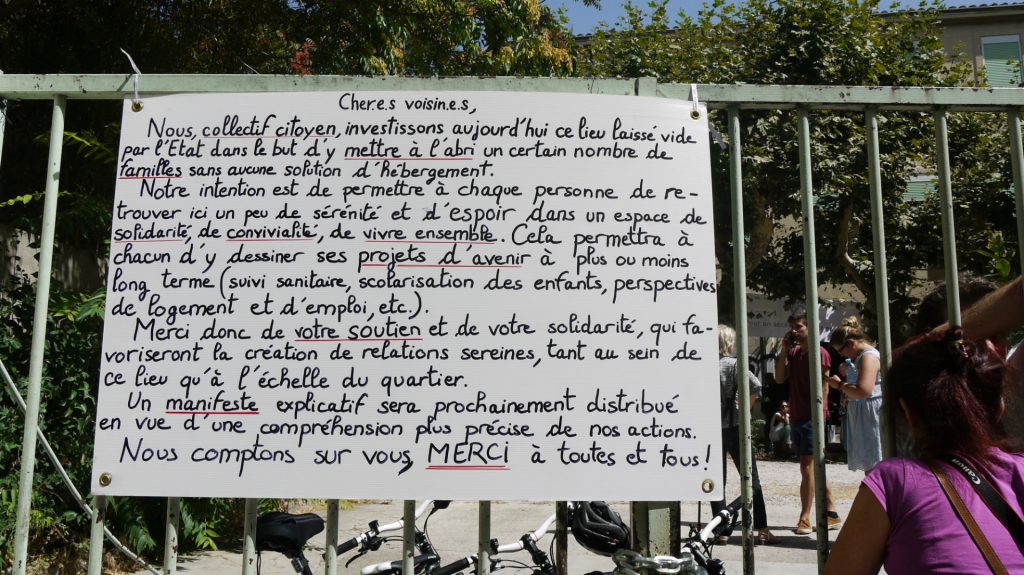 Cher.e.s voisin.e.s,
Nous, collectif citoyen, investissons aujourd'hui ce lieu laissé vide
par l'Etat dans le but d'y mettre à l'abri un certain nombre de
familles sans aucune solution d'hébergement.
Notre intention est de permettre à chaque personne de re-
trouver ici un peu de sérénité et d'espoir dans un espace de
solidarité, de convivialité, de vivre ensemble. Cela permettra à
chacun d'y dessiner ses projets d'avenir à plus ou moins
long terme (suivi sanitaire, scolarisation des enfants, perspectives
de logement et d'emploi, etc.).
Merci donc de votre soutien et de votre solidarité, qui fa-
voriseront la création de relations sereines, tant au sein de
ce lieu qu'à l'échelle du quartier.
Un manifeste explicatif sera prochainement distribué
en vue d'une compréhension plus précise de nos actions.
Nous comptons sur vous, MERCI à toutes et tous !
Canon